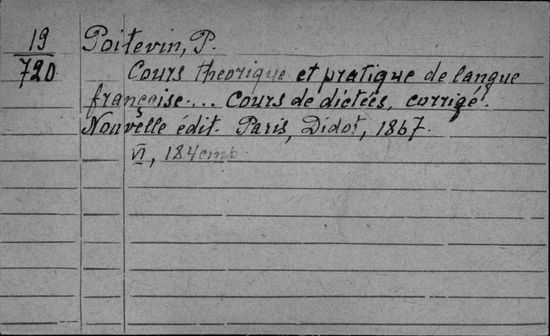 19 Poitevin, P.
720 Cours theorique et pratique de langue
française.... Cours de dictées, corrigé.
Nouvelle édit. Paris, Didot, 1867.
VI, 184